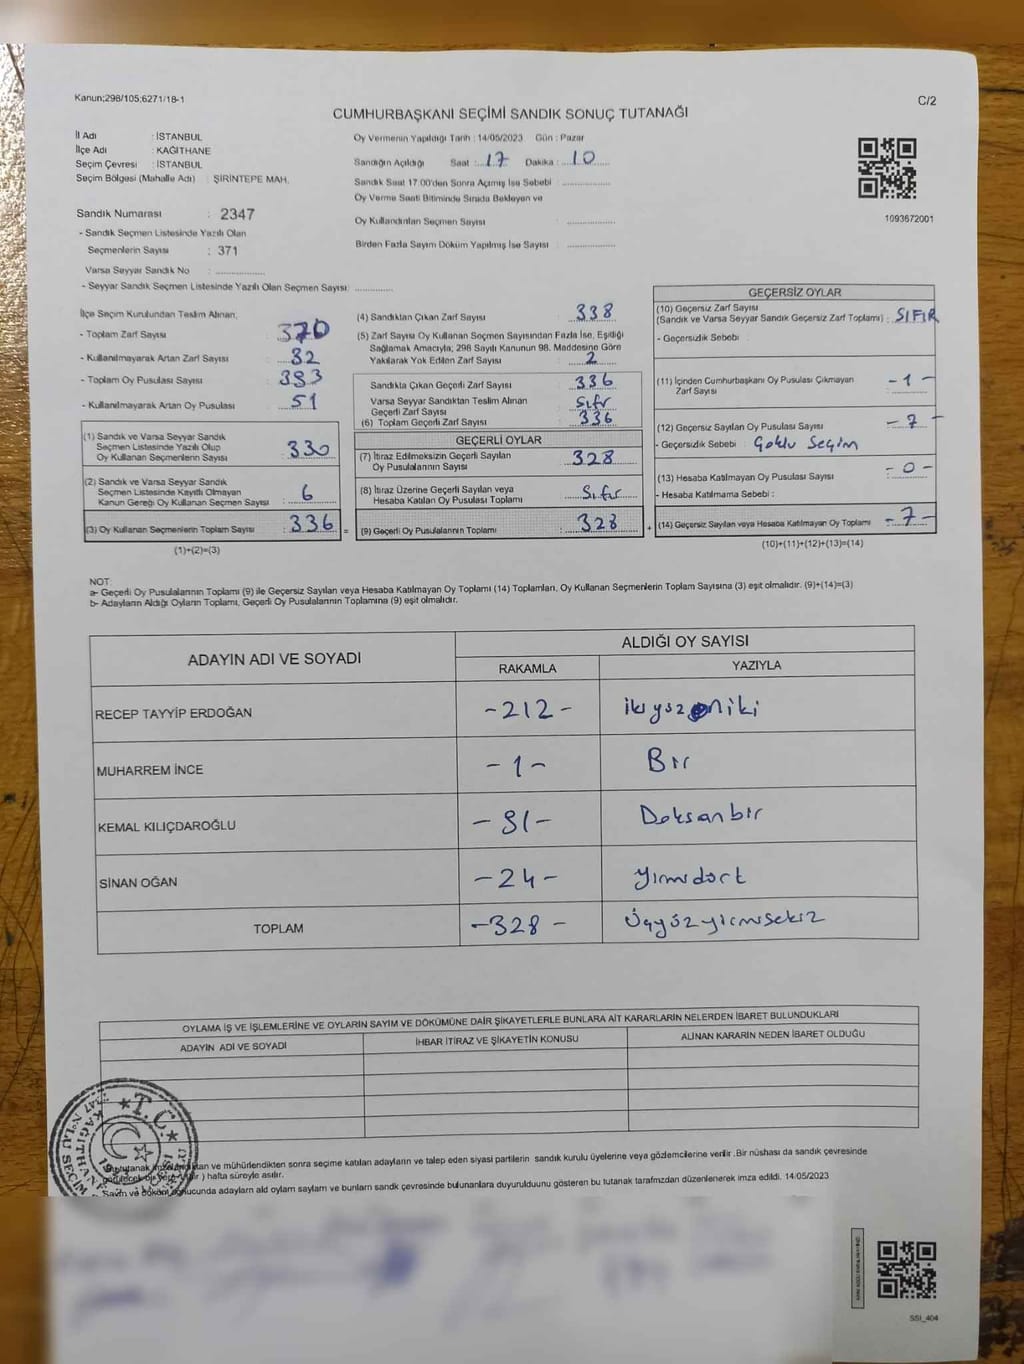 Kanun;298/105;6271/18-1
C/2
CUMHURBAŞKANI SEÇİMİ SANDIK SONUÇ TUTANAĞI
İl Adı : İSTANBUL
İlçe Adı : KAĞITHANE
Seçim Çevresi : İSTANBUL
Seçim Bölgesi (Mahalle Adı) : ŞİRİNTEPE MAH.
Sandık Numarası : 2347
- Sandık Seçmen Listesinde Yazılı Olan
Seçmenlerin Sayısı : 371
Varsa Seyyar Sandık No : ................
- Seyyar Sandık Seçmen Listesinde Yazılı Olan Seçmen Sayısı: ............
Oy Vermenin Yapıldığı Tarih : 14/05/2023 Gün : Pazar
Sandığın Açıldığı Saat : 17 Dakika : 10
Sandık Saat 17:00'den Sonra Açımış İse Sebebi ................
Oy Verme Saati Bitiminde Sırada Bekleyen ve
Oy Kullandırılan Seçmen Sayısı ................
Birden Fazla Sayım Döküm Yapılmış İse Sayısı ................
1093672001
İlçe Seçim Kurulundan Teslim Alınan;
- Toplam Zarf Sayısı : 370
- Kullanılmayarak Artan Zarf Sayısı : 32
- Toplam Oy Pusulası Sayısı : 393
- Kullanılmayarak Artan Oy Pusulası : 51
(1) Sandık ve Varsa Seyyar Sandık
Seçmen Listesinde Yazılı Olup
Oy Kullanan Seçmenlerin Sayısı : 330
(2) Sandık ve Varsa Seyyar Sandık
Seçmen Listesinde Kayıtlı Olmayan
Kanun Gereği Oy Kullanan Seçmen Sayısı : 6
(3) Oy Kullanan Seçmenlerin Toplam Sayısı : 336 =
(1)+(2)=(3)
(4) Sandıktan Çıkan Zarf Sayısı : 338
(5) Zarf Sayısı Oy Kullanan Seçmen Sayısından Fazla İse, Eşitliği
Sağlamak Amacıyla; 298 Sayılı Kanunun 98. Maddesine Göre
Yakılarak Yok Edilen Zarf Sayısı : 2
Sandıkta Çıkan Geçerli Zarf Sayısı : 336
Varsa Seyyar Sandıktan Teslim Alınan
Geçerli Zarf Sayısı : Sıfır
(6) Toplam Geçerli Zarf Sayısı : 336
GEÇERLİ OYLAR
(7) İtiraz Edilmeksizin Geçerli Sayılan
Oy Pusulalarının Sayısı : 328
(8) İtiraz Üzerine Geçerli Sayılan veya
Hesaba Katılan Oy Pusulası Toplamı : Sıfır
(9) Geçerli Oy Pusulalarının Toplamı : 328 +
GEÇERSİZ OYLAR
(10) Geçersiz Zarf Sayısı
(Sandık ve Varsa Seyyar Sandık Geçersiz Zarf Toplamı) : SIFIR
- Geçersizlik Sebebi :
(11) İçinden Cumhurbaşkanı Oy Pusulası Çıkmayan
Zarf Sayısı : - 1 -
(12) Geçersiz Sayılan Oy Pusulası Sayısı : - 7 -
- Geçersizlik Sebebi : Çoklu Seçim
(13) Hesaba Katılmayan Oy Pusulası Sayısı : - 0 -
- Hesaba Katılmama Sebebi :
(14) Geçersiz Sayılan veya Hesaba Katılmayan Oy Toplamı : - 7 -
(10)+(11)+(12)+(13)=(14)
NOT:
a- Geçerli Oy Pusulalarının Toplamı (9) ile Geçersiz Sayılan veya Hesaba Katılmayan Oy Toplamı (14) Toplamları, Oy Kullanan Seçmenlerin Toplam Sayısına (3) eşit olmalıdır. (9)+(14)=(3)
b- Adayların Aldığı Oyların Toplamı, Geçerli Oy Pusulalarının Toplamına (9) eşit olmalıdır.
ADAYIN ADI VE SOYADI
ALDIĞI OY SAYISI
RAKAMLA
YAZIYLA
RECEP TAYYİP ERDOĞAN -212- ikiyüzoniki
MUHARREM İNCE -1- Bir
KEMAL KILIÇDAROĞLU -91- Doksanbir
SİNAN OĞAN -24- Yirmidört
TOPLAM -328- Üçyüzyirmisekiz
OYLAMA İŞ VE İŞLEMLERİNE VE OYLARIN SAYIM VE DÖKÜMÜNE DAİR ŞİKAYETLERLE BUNLARA AİT KARARLARIN NELERDEN İBARET BULUNDUKLARI
ADAYIN ADI VE SOYADI
İHBAR İTİRAZ VE ŞİKAYETİN KONUSU
ALINAN KARARIN NEDEN İBARET OLDUĞU
T.C.
KAĞITHANE
ve mühürlendikten sonra seçime katılan adayların ve talep eden siyasi partilerin sandık kurulu üyelerine veya gözlemcilerine verilir .Bir nüshası da sandık çevresinde
) hafta süreyle asılır.
Sayım ve döküm sonucunda adayların ald oyların saylam ve bunların sandk çevresinde bulunanlara duyurulduunu gösteren bu tutanak tarafmzdan düzenlenerek imza edildi. 14/05/2023
SSI_404